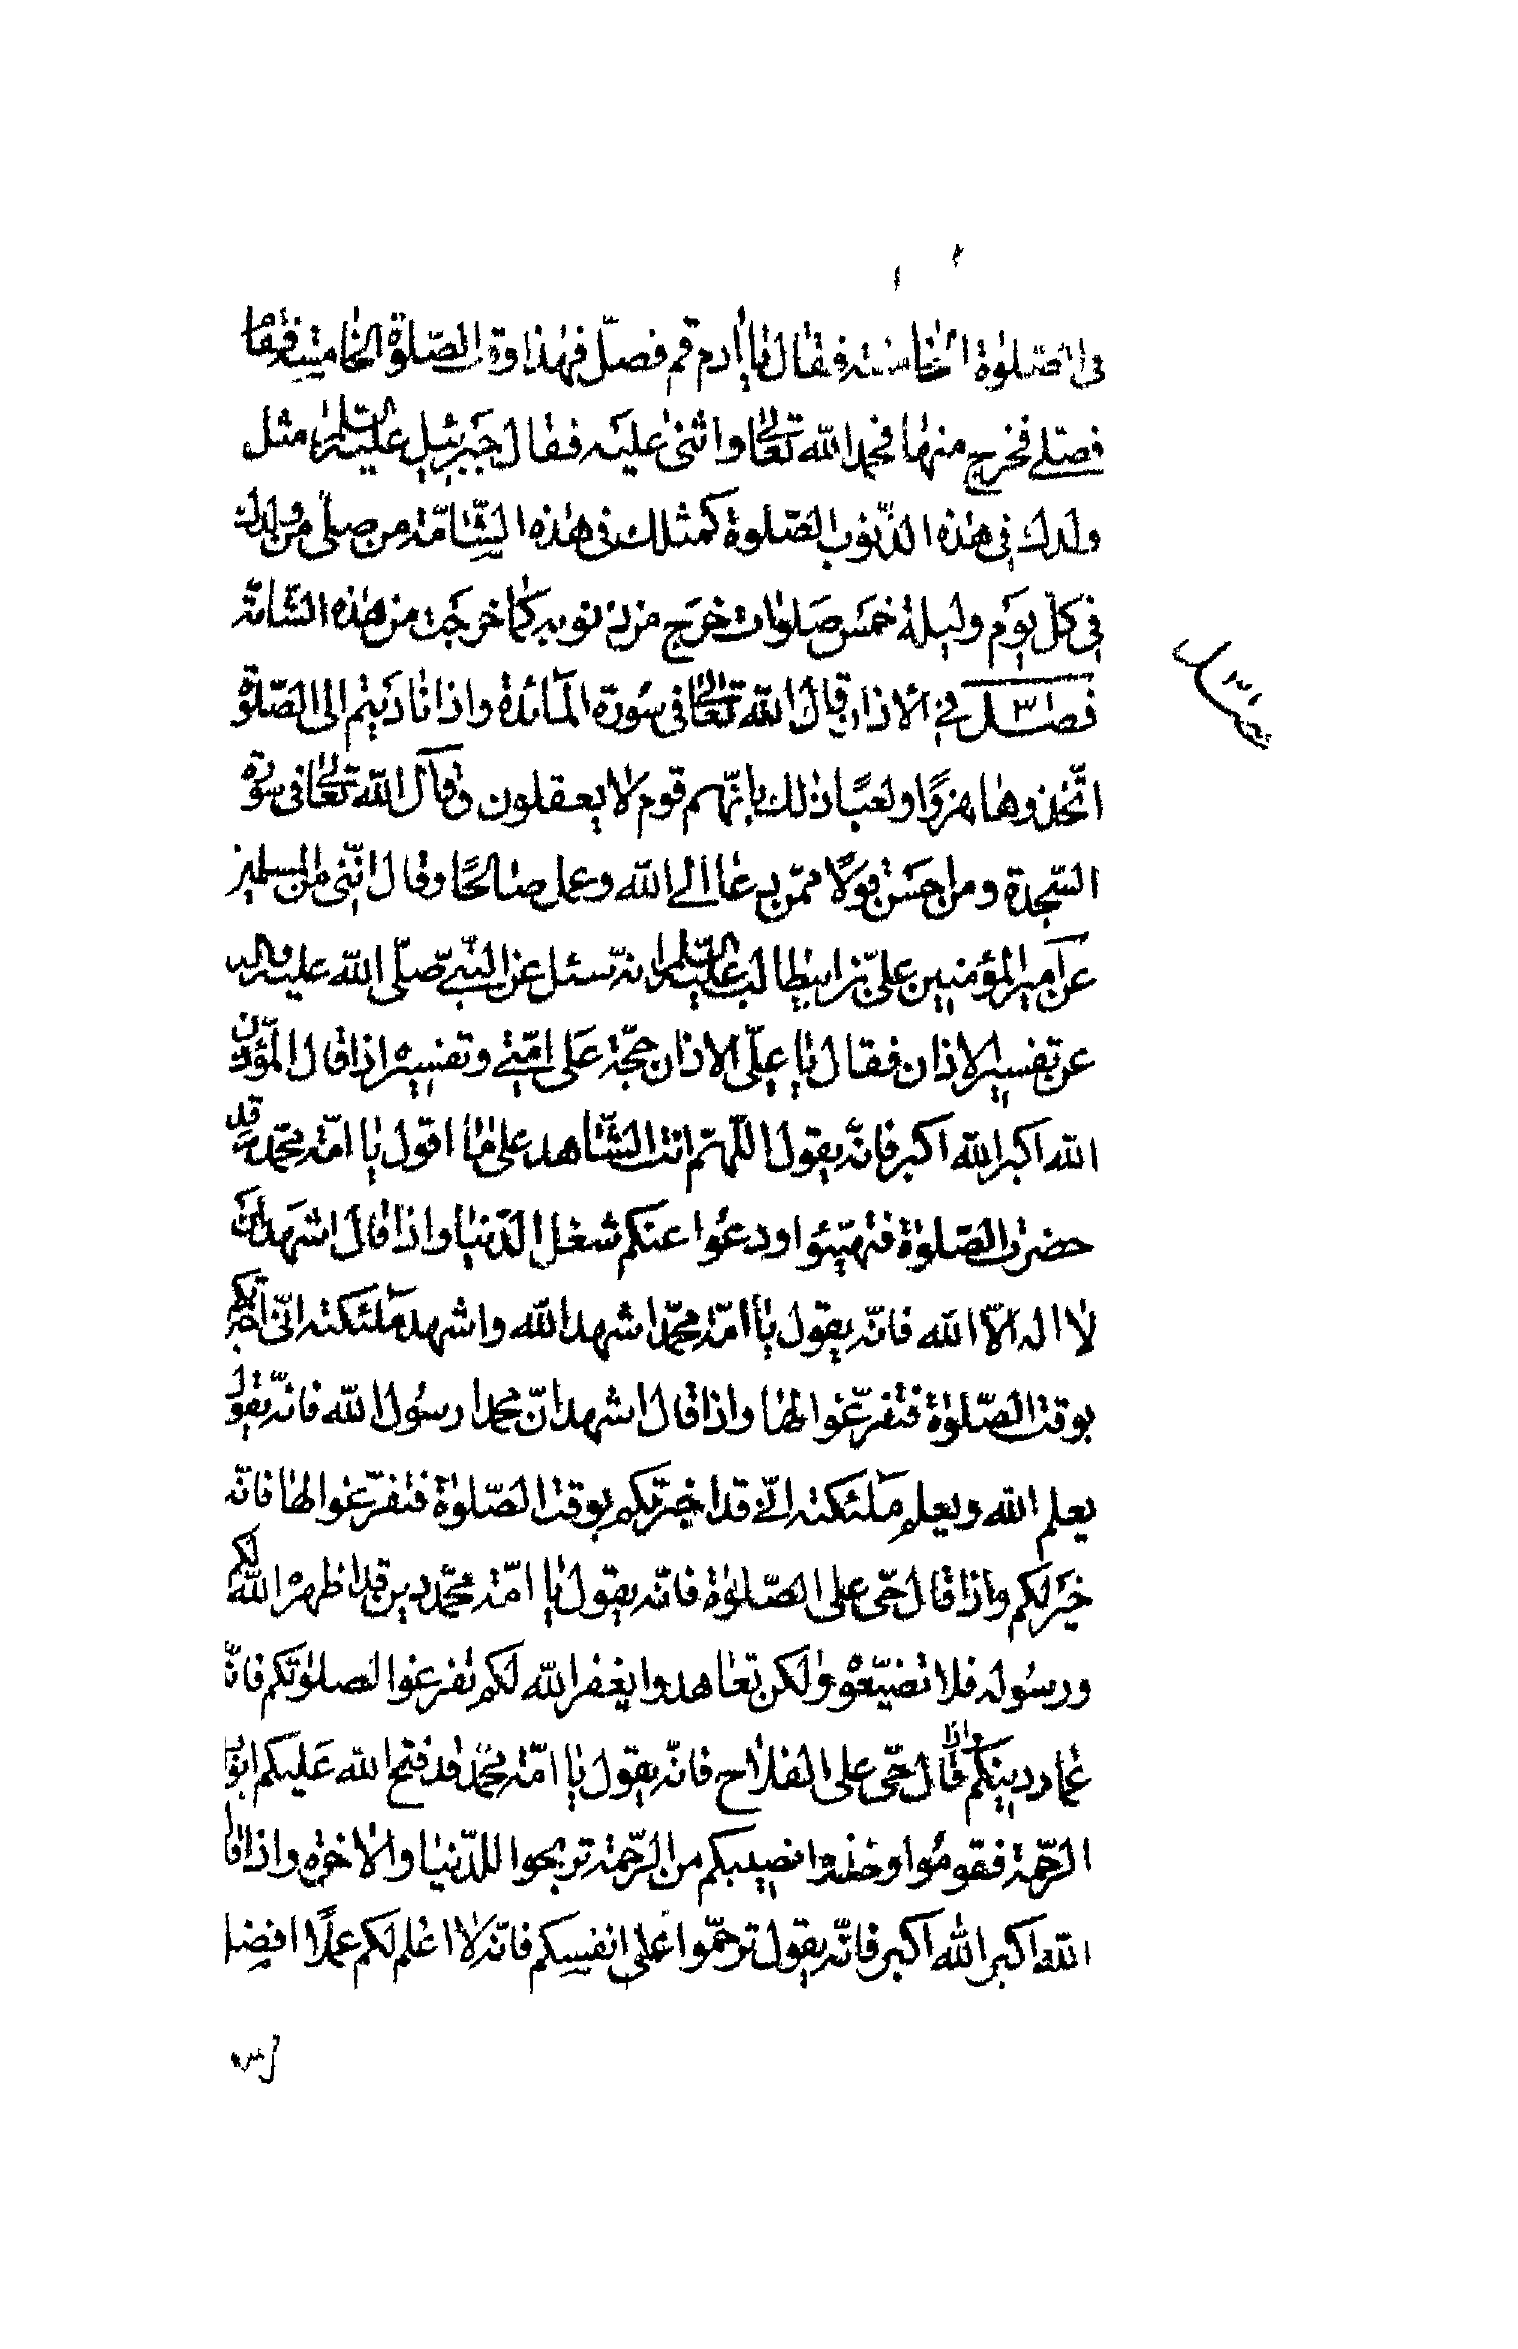 في الصلوٰة الخامسة فقال يا اٰدم قم فصلّ فهٰذا وقت الصّلوة الخامسة فقام
فصلّى فخرج منها فحمد الله تعالى واثنى عليه فقال جبرئيل عليه السّلم مثل
ولدك في هذه الذّنوب الصّلوة كمثلك في هذه الشّامّة من صلّى من ولدك
في كلّ يوم وليلة خمس صلوات خرج من ذنوبه كما خرجت من هذه الشّامة
فصل ٣٠ في الاذان قال الله تعالى في سورة المائدة واذا ناديتم الى الصّلوة
اتّخذوها هزوًا ولعبًا ذلك بانّهم قوم لا يعقلون وقال الله تعالى في سورة
السّجدة ومن احسن قولًا ممّن دعا الى الله وعمل صالحًا وقال انّني من المسلمين
عن امير المؤمنين علىّ بن ابيطالب عليه السّلم انه سئل عن النّبي صلّى الله عليه واله
عن تفسير الاذان فقال يا علىّ الاذان حجّة على امّتى وتفسيره اذا قال المؤذّن
الله اكبر الله اكبر فانّه يقول اللّهمّ انت الشّاهد على ما اقول يا امّة محمّد قد
حضرت الصّلوٰة فتهيّئوا ودعوا عنكم شغل الدّنيا واذا قال اشهد ان
لا اله الّا الله فانّه يقول يا امّة محمّد اشهد الله واشهد ملئكته انّى اخبرتكم
بوقت الصّلوٰة فتفرّغوا لها واذا قال اشهد انّ محمدا رسول الله فانّه يقول
يعلم الله ويعلم ملئكته انّى قد اخبرتكم بوقت الصّلوٰة فتفرّغوا لها فانّه
خير لكم واذا قال حىّ على الصّلوٰة فانّه يقول يا امّة محمّد دين قد اظهره الله لكم
ورسوله فلا تضيّعوه ولكن تعاهدوا يغفر الله لكم تفرغوا لصلوٰتكم فانّه
عماد دينكم واذا قال حىّ على الفلاح فانّه يقول يا امّة محمّد قد فتح الله عليكم ابواب
الرّحمة فقوموا وخذوا نصيبكم من الرّحمة تربحوا للدّنيا والاخرة واذا قال
الله اكبر الله اكبر فانّه يقول ترحّموا على انفسكم فانّه لا اعلم لكم عملًا افضل